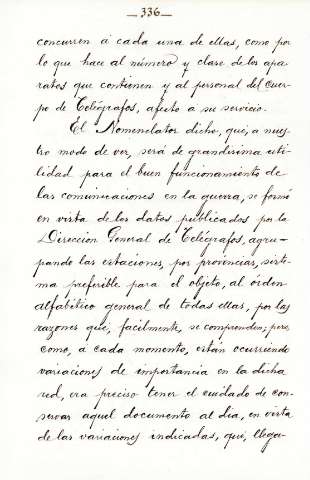 — 336 —
concurren á cada una de ellas, como por
lo que hace al número y clase de los apa-
ratos que contienen y al personal del Cuer-
po de Telégrafos, afecto á su servicio.
El Nomenclator dicho, que, á nues-
tro modo de ver, será de grandísima uti-
lidad para el buen funcionamiento de
las comunicaciones en la guerra, se formó
en vista de los datos publicados por la
Dirección General de Telégrafos, agru-
pando las estaciones, por provincias, siste-
ma preferible para el objeto, al órden
alfabético general de todas ellas, por las
razones que, facilmente, se comprenden; pero
como, á cada momento, están ocurriendo
variaciones de importancia en la dicha
red, era preciso tener el cuidado de con-
servar aquel documento al dia, en vista
de las variaciones indicadas, que, llega-